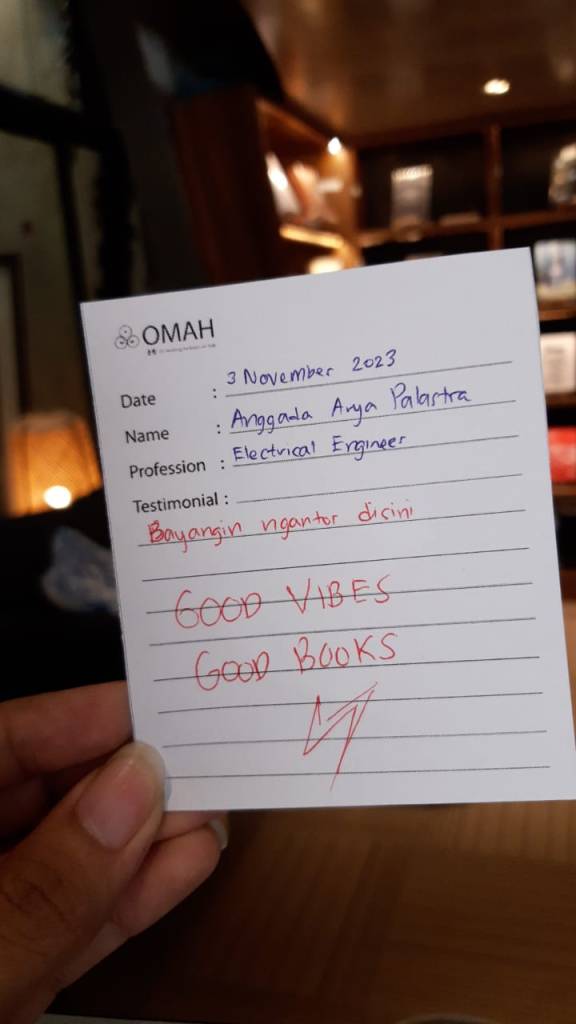 OMAH
Date : 3 November 2023
Name : Anggada Arya Palastra
Profession : Electrical Engineer
Testimonial :
Bayangin ngantor disini
GOOD VIBES
GOOD BOOKS